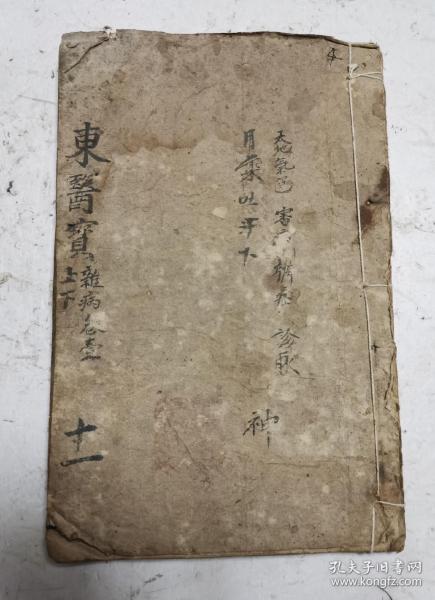 天地氣運 審病 辨症 診脈 神
用藥吐汗下
東醫寶
雜病卷壹
上下
十一
孔夫子旧书网
www.kongfz.com